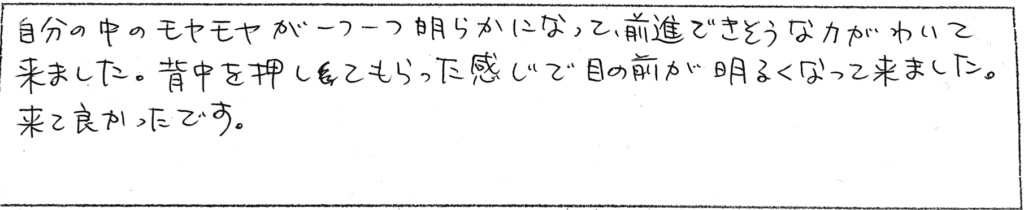 自分の中のモヤモヤが一つ一つ明らかになって、前進できそうな力がわいて
来ました。背中を押してもらった感じで目の前が明るくなって来ました。
来て良かったです。